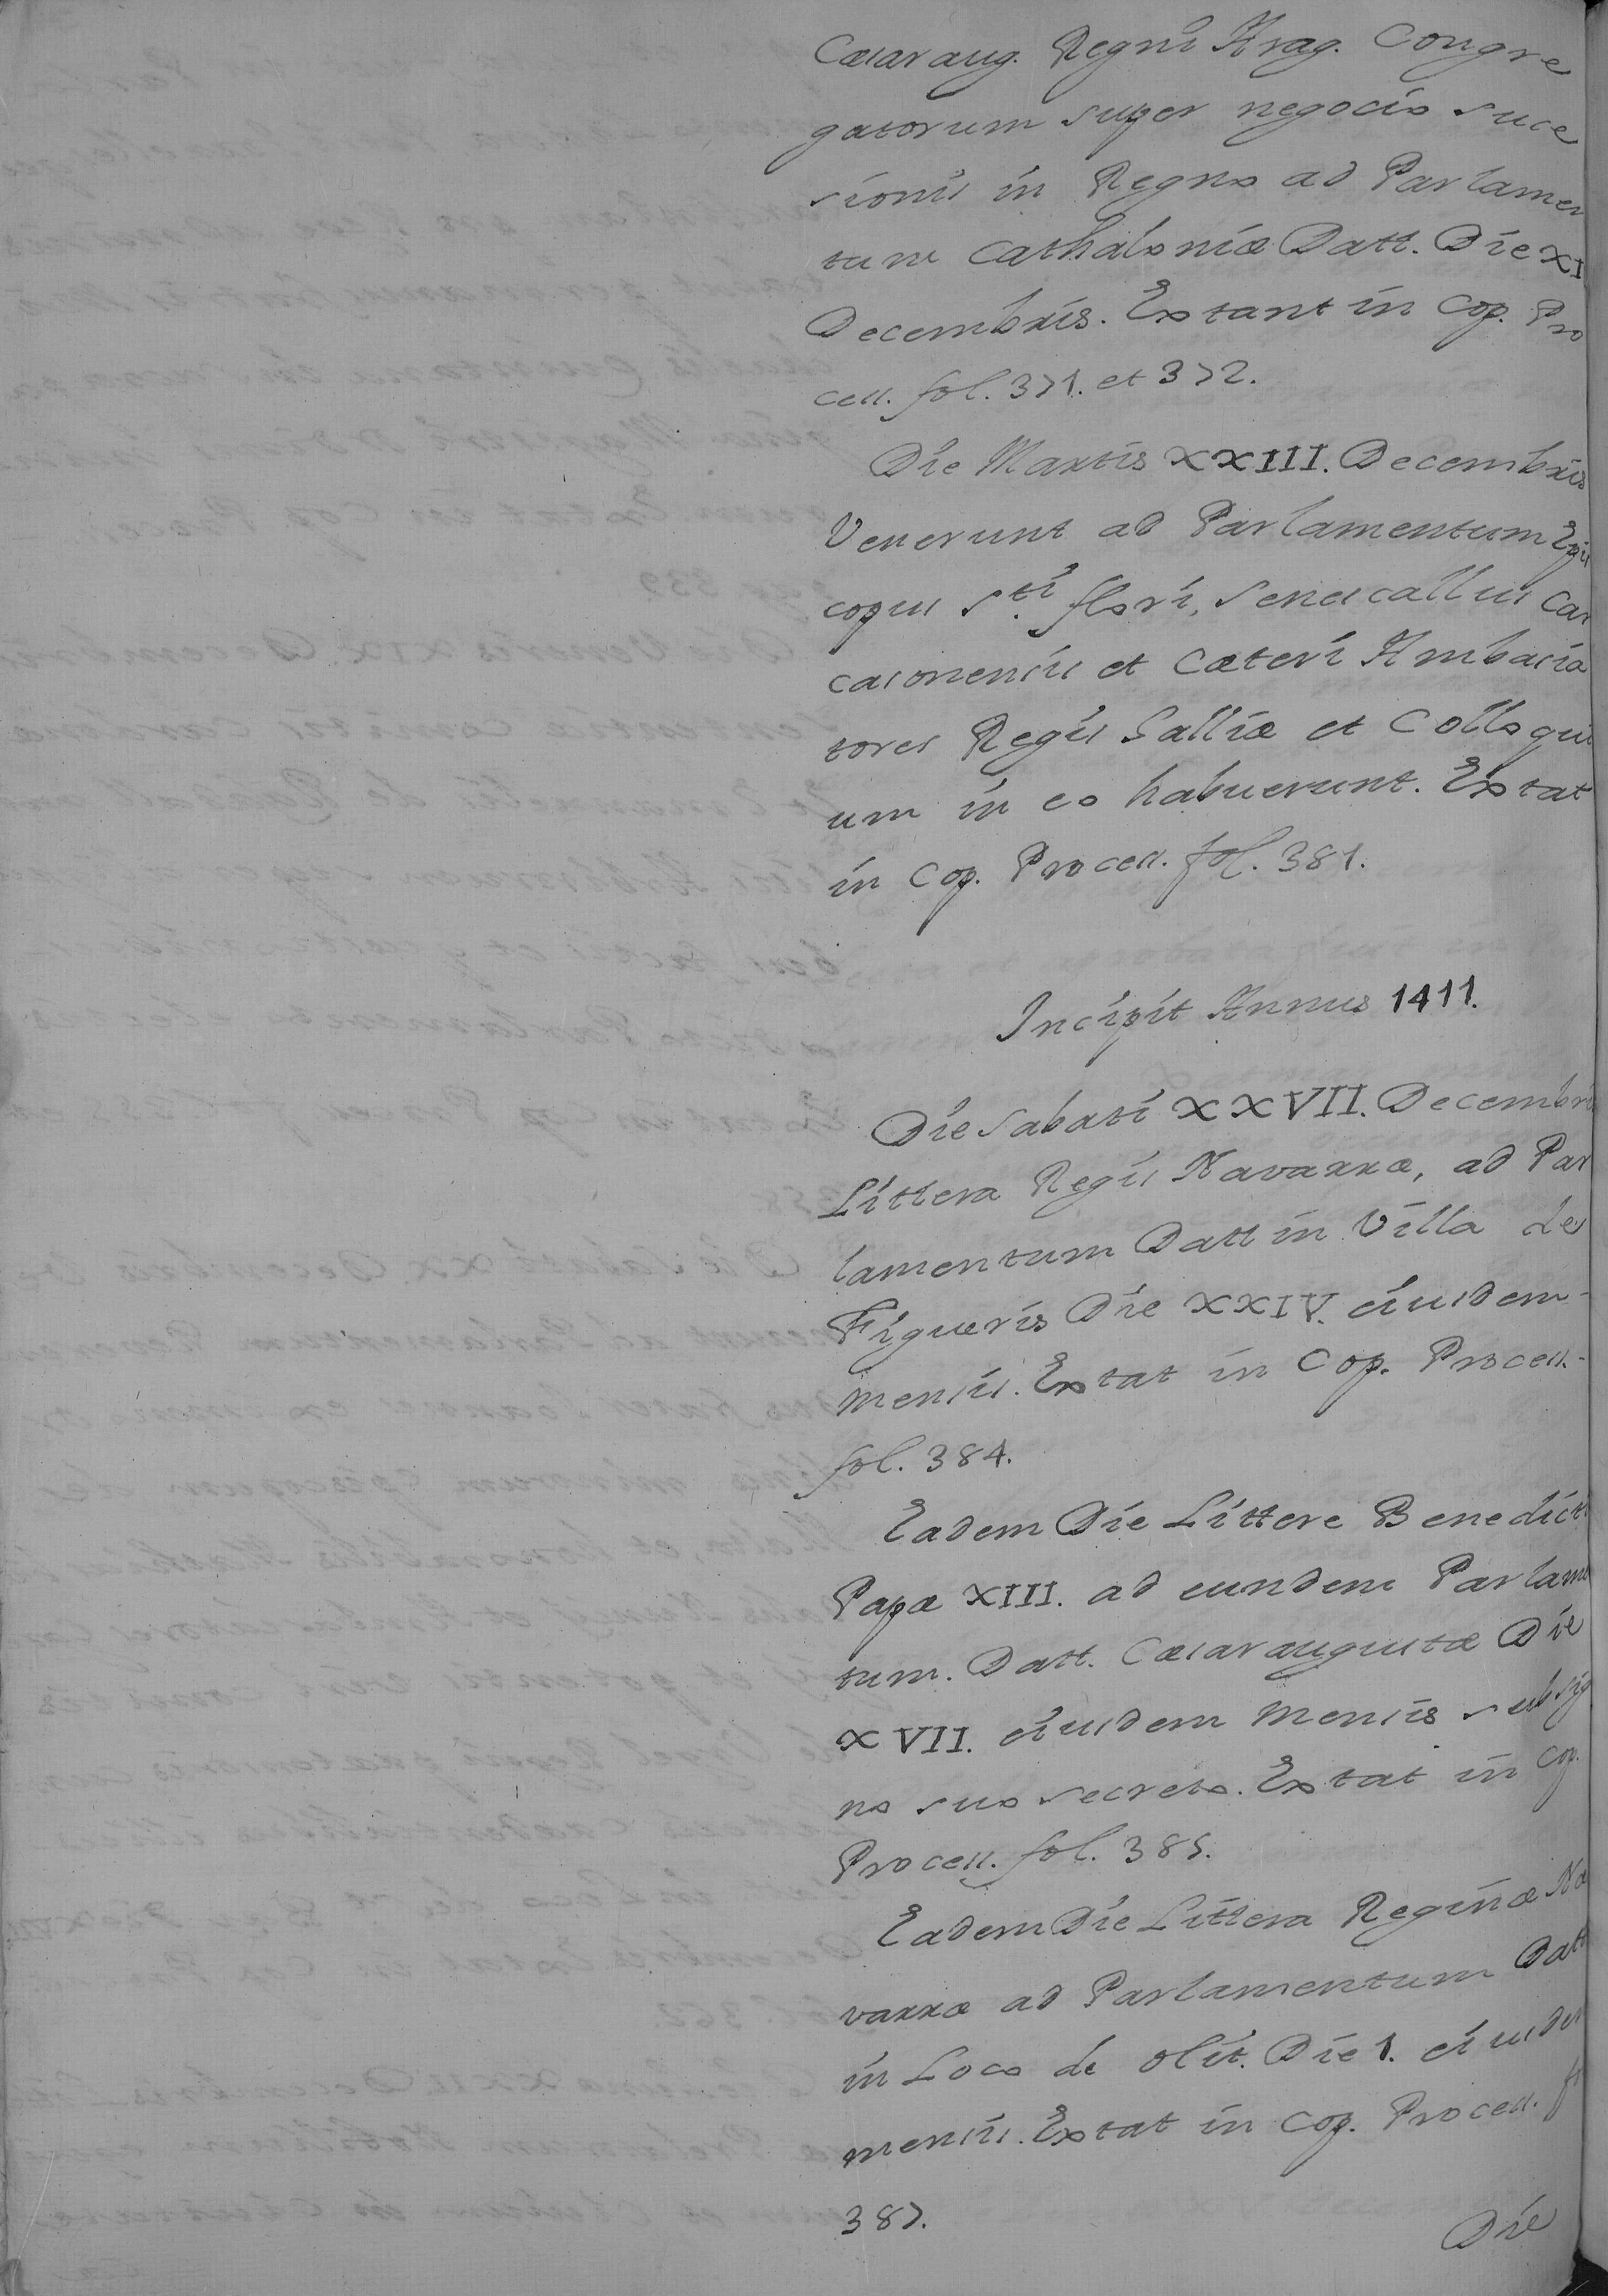 Cæsaraug. Regni Arag. Congre
gatorum super negocio suce
sionis in Regno ad Parlamen
tum Cathaloniæ Datt. Die XI
Decembris. Extant in Cop. Pro
cess. fol. 371. et 372.
Die Martis XXIII. Decembris
Venerunt ad Parlamentum Epis
copus S.ti flori, Senescallus Car
casonensis et Cæteri Ambasia
tores Regis Galliæ et Colloqui
um in eo habuerunt. Extat
in Cop. Process. fol. 381.
Incipit Annus 1411.
Die Sabati XXVII. Decembris
Littera Regis Navarræ, ad Par
lamentum Datt in Villa de
Figueris Die XXIV. eiusdem-
mensis. Extat in Cop. Process.-
fol. 384.
Eadem Die Littere Benedicti
Papæ XIII. ad eundem Parlamen
tum. Datt. Cæsaraugustæ Die
XVII. eiusdem mensis subsig
no suo secreto. Extat in Cop.
Process. fol. 385.
Eadem Die Littera Reginæ Na
varræ ad Parlamentum Datt
in Loco de Olit. Die 1. eiusdem
mensis. Extat in Cop. Process. fol
387.
Die